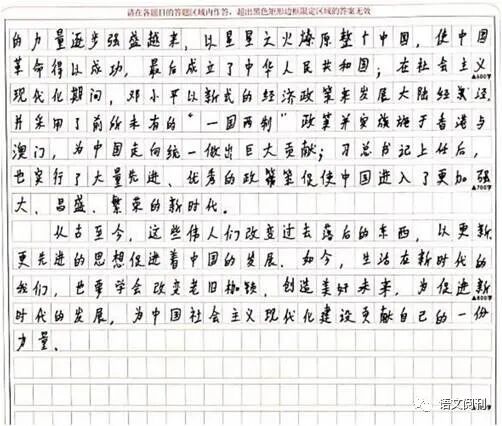 请在各题目的答题区域内作答，超出黑色矩形边框限定区域的答案无效
的力量逐步强盛越来，以星星之火燎原整个中国，使中国
革命得以成功，最后成立了中华人民共和国；在社会主义
▲600字
现代化期间，邓小平以新式的经济政策来发展大陆经济，
并采用了前所未有的“一国两制”政策并实施于香港与
澳门，为中国走向统一做出巨大贡献；习总书记上任后，
也实行了大量先进、优秀的政策促使中国进入了更加强
▲700字
大、昌盛、繁荣的新时代。
从古至今，这些伟人们改变过去落后的东西，以更新
更先进的思想促进着中国的发展。如今，生活在新时代的
我们，也要学会改变老旧枷锁，创造美好未来，为促进新
▲800字
时代的发展，为中国社会主义现代化建设贡献自己的一份
力量。
语文阅刊